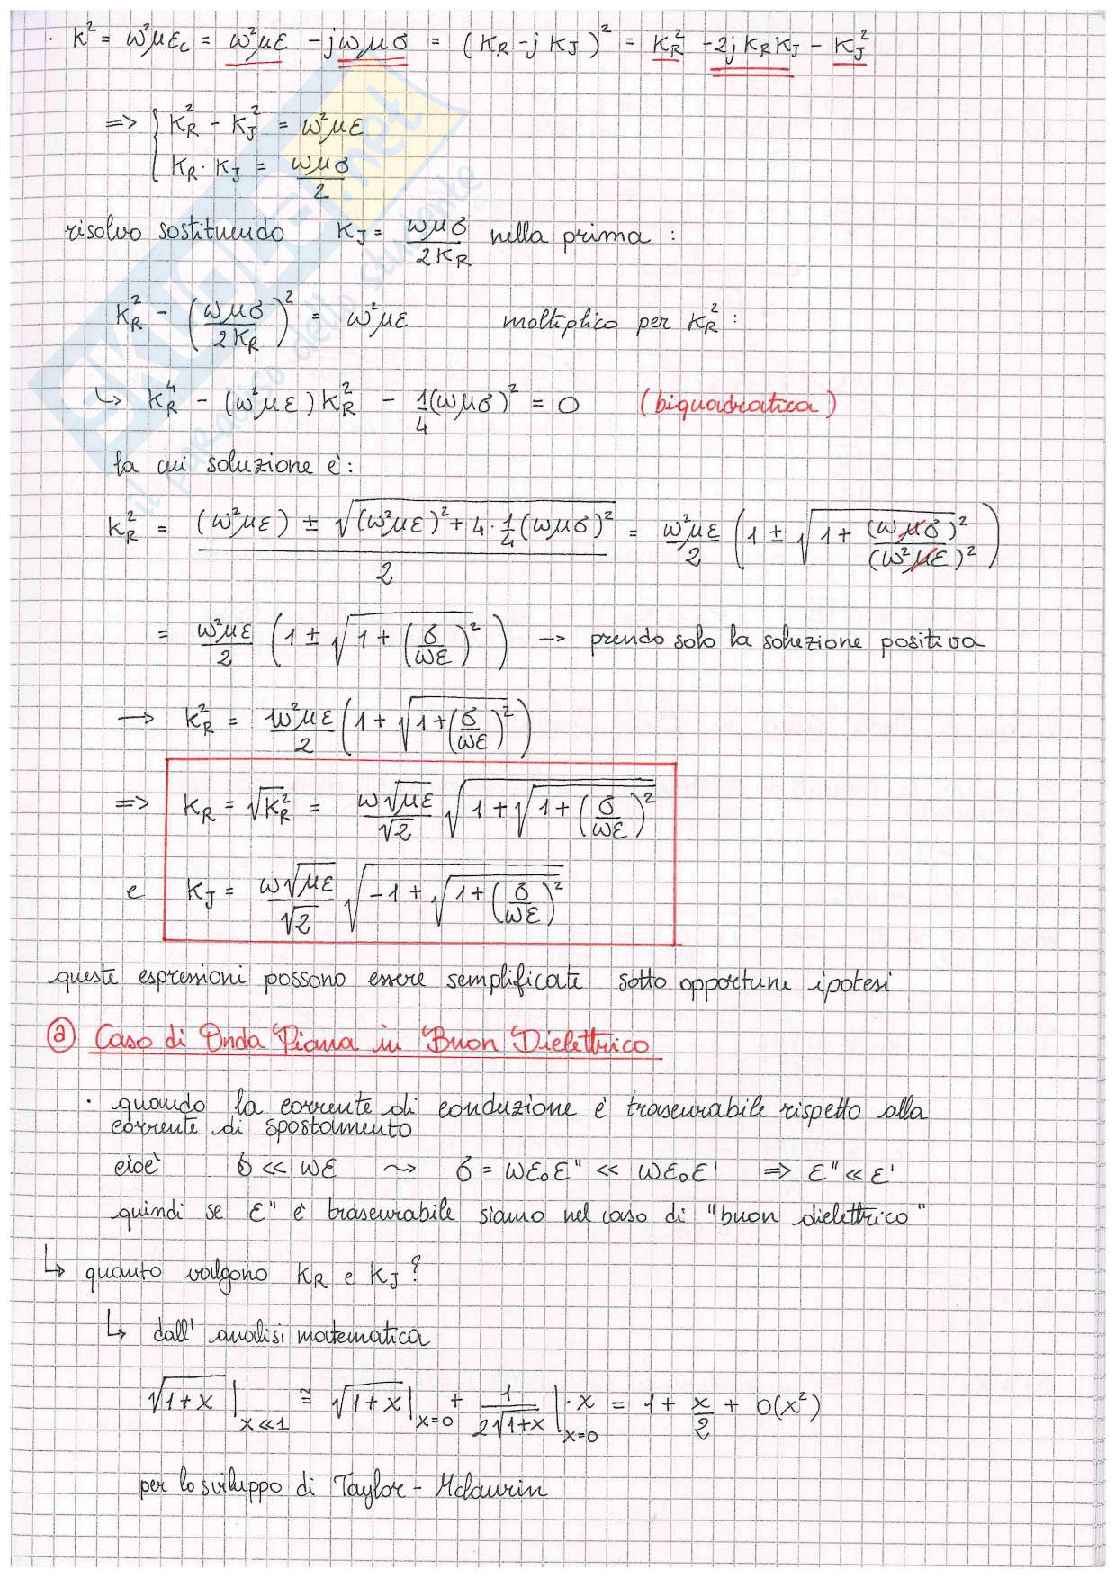 · K² = ω²με_c = ω²με - jωμσ = (K_R - j K_J)² = K_R² - 2j K_R K_J - K_J²
=> { K_R² - K_J² = ω²με
{ K_R · K_J = ωμσ/2
risolvo sostituendo K_J = ωμσ/2K_R nella prima :
K_R² - (ωμσ/2K_R)² = ω²με moltiplico per K_R² :
↳ K_R⁴ - (ω²με) K_R² - 1/4 (ωμσ)² = 0 (biquadratica)
la cui soluzione è :
K_R² = ((ω²με) ± √((ω²με)² + 4 · 1/4 (ωμσ)²))/2 = ω²με/2 (1 ± √(1 + (ωμσ)²/(ω²με)²))
= ω²με/2 (1 ± √(1 + (σ/ωε)²)) → prendo solo la soluzione positiva
→ K_R² = ω²με/2 (1 + √(1 + (σ/ωε)²))
=> K_R = √K_R² = ω√με/√2 √(1 + √(1 + (σ/ωε)²))
e K_J = ω√με/√2 √(-1 + √(1 + (σ/ωε)²))
queste espressioni possono essere semplificate sotto opportune ipotesi
ⓐ Caso di Onda Piana in "Buon Dielettrico"
· quando la corrente di conduzione è trascurabile rispetto alla
corrente di spostamento
cioè σ << ωε ⤳ σ = ωε₀ε'' << ωε₀ε' => ε'' << ε'
quindi se ε'' è trascurabile siamo nel caso di "buon dielettrico"
↳ quanto valgono K_R e K_J ?
↳ dall' analisi matematica
√(1+x) |_{x<<1} ≅ √(1+x) |_{x=0} + 1/(2√(1+x)) |_{x=0} · x = 1 + x/2 + O(x²)
per lo sviluppo di Taylor - Mclaurin
SKUOLA.net
il paradiso dello studente